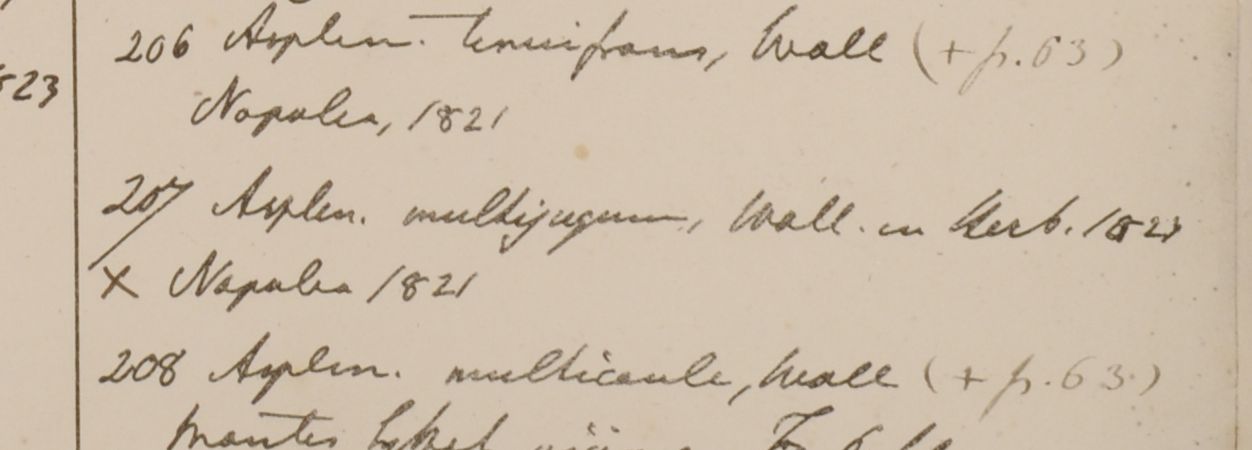 823
206 Asplen. tenuifrons, Wall (+ p. 63)
Napalia, 1821
207 Asplen. multijugum, Wall. in Herb. 1823
× Napalia 1821
208 Asplen. multicaule, Wall (+ p. 63.)
montes